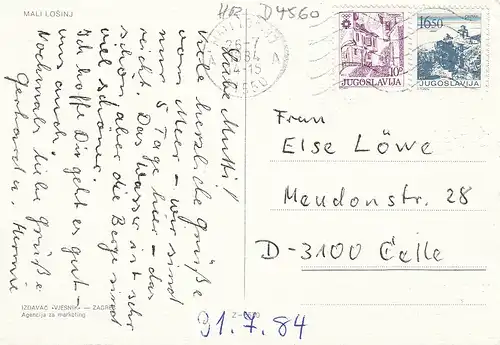 MALI LOŠINJ
HR D4560
10
JUGOSLAVIJA
16.50
JUGOSLAVIJA
Liebe Mutti!
Viele herzliche Grüße
vom Meer – wir sind
nur 5 Tage hier – das
reicht. Das Wasser ist sehr
schön, aber die Berge sind
viel schöner.
Ich hoffe Dir geht es gut –
uns auch.
Nochmals liebe Grüße
Gerhard u.
Frau
Else Löwe
Meudonstr. 28
D-3100 Celle
IZDAVAČ »VJESNIK« — ZAGREB
Agencija za marketing
31.7.84